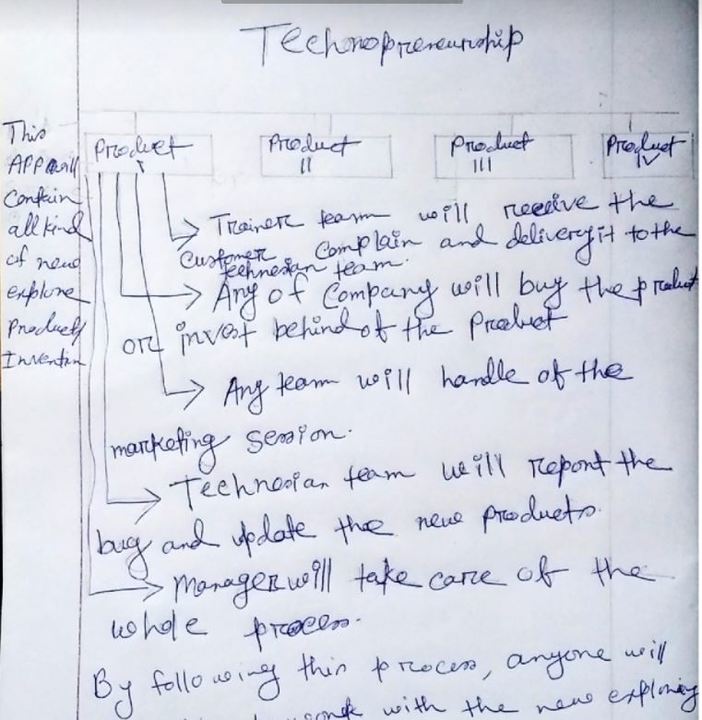 Technopreneurship
This
APP will
Contain
all kind
of new
explore
Product/
Invention
Product
I
Product
II
Product
III
Product
IV
Trainer team will receive the
Customer Complain and delivery it to the
Technesian team.
Any of Company will buy the product
or invest behind of the Product
Any team will handle of the
marketing session.
Technesian team will report the
bug and update the new products.
Manager will take care of the
whole process.
By following this process, anyone will
work with the new exploring